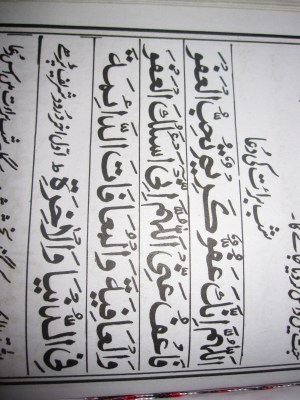 شب برأت کی دعا
اَللّٰهُمَّ اِنَّكَ عَفُوٌّ كَرِيْمٌ تُحِبُّ الْعَفْوَ
فَاعْفُ عَنِّيْ اَللّٰهُمَّ اِنِّيْ اَسْئَلُكَ الْعَفْوَ
وَالْعَافِيَةَ وَالْمُعَافَاتَ الدَّائِمَةَ
فِي الدُّنْيَا وَالْاٰخِرَةِ ط اول آخر درود شریف پڑھے